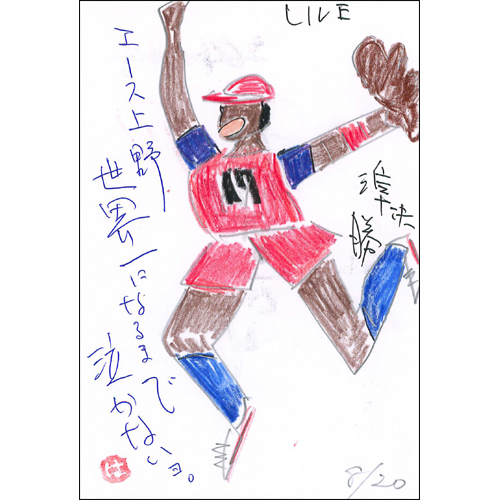 LIVE
エース上野
世界一になるまで
泣かないヨ。
17
準決
勝
8/20